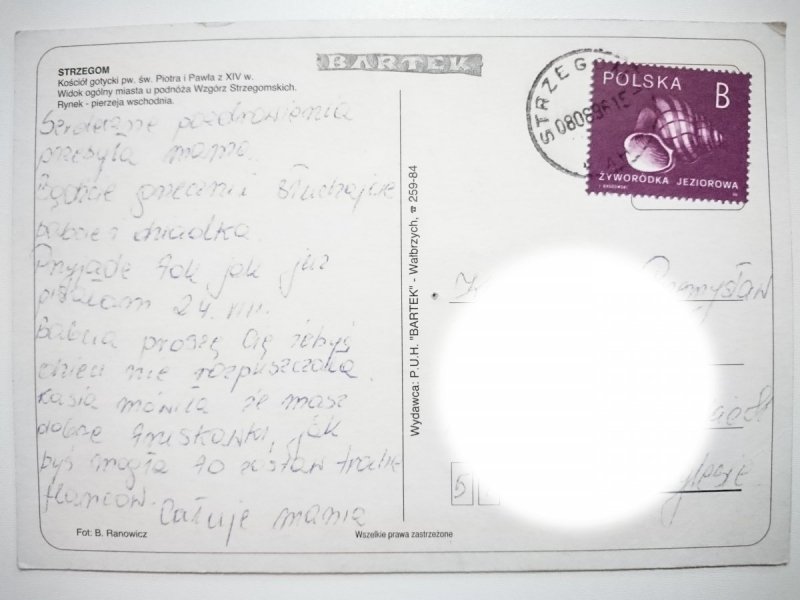 STRZEGOM
Kościół gotycki pw. św. Piotra i Pawła z XIV w.
Widok ogólny miasta u podnóża Wzgórz Strzegomskich.
Rynek - pierzeja wschodnia.
BARTEK
Serdeczne pozdrowienia
przesyła mama.
Bądźcie grzeczni i słuchajcie
babcie i dziadka
Przyjadę tak jak już
pisałam 24. VIII.
Babcia proszę Cię żebyś
dzieci nie rozpuszczała
Kasia mówiła że masz
dobre truskawki, jak
byś mogła to zostaw trochę
flanców.
Całuje mama
Fot: B. Ranowicz
Wydawca: P.U.H. "BARTEK" - Wałbrzych, ☎ 259-84
Wszelkie prawa zastrzeżone
STRZEGOM
080896 15
POLSKA
B
ŻYWORÓDKA JEZIOROWA
Przemysław
5